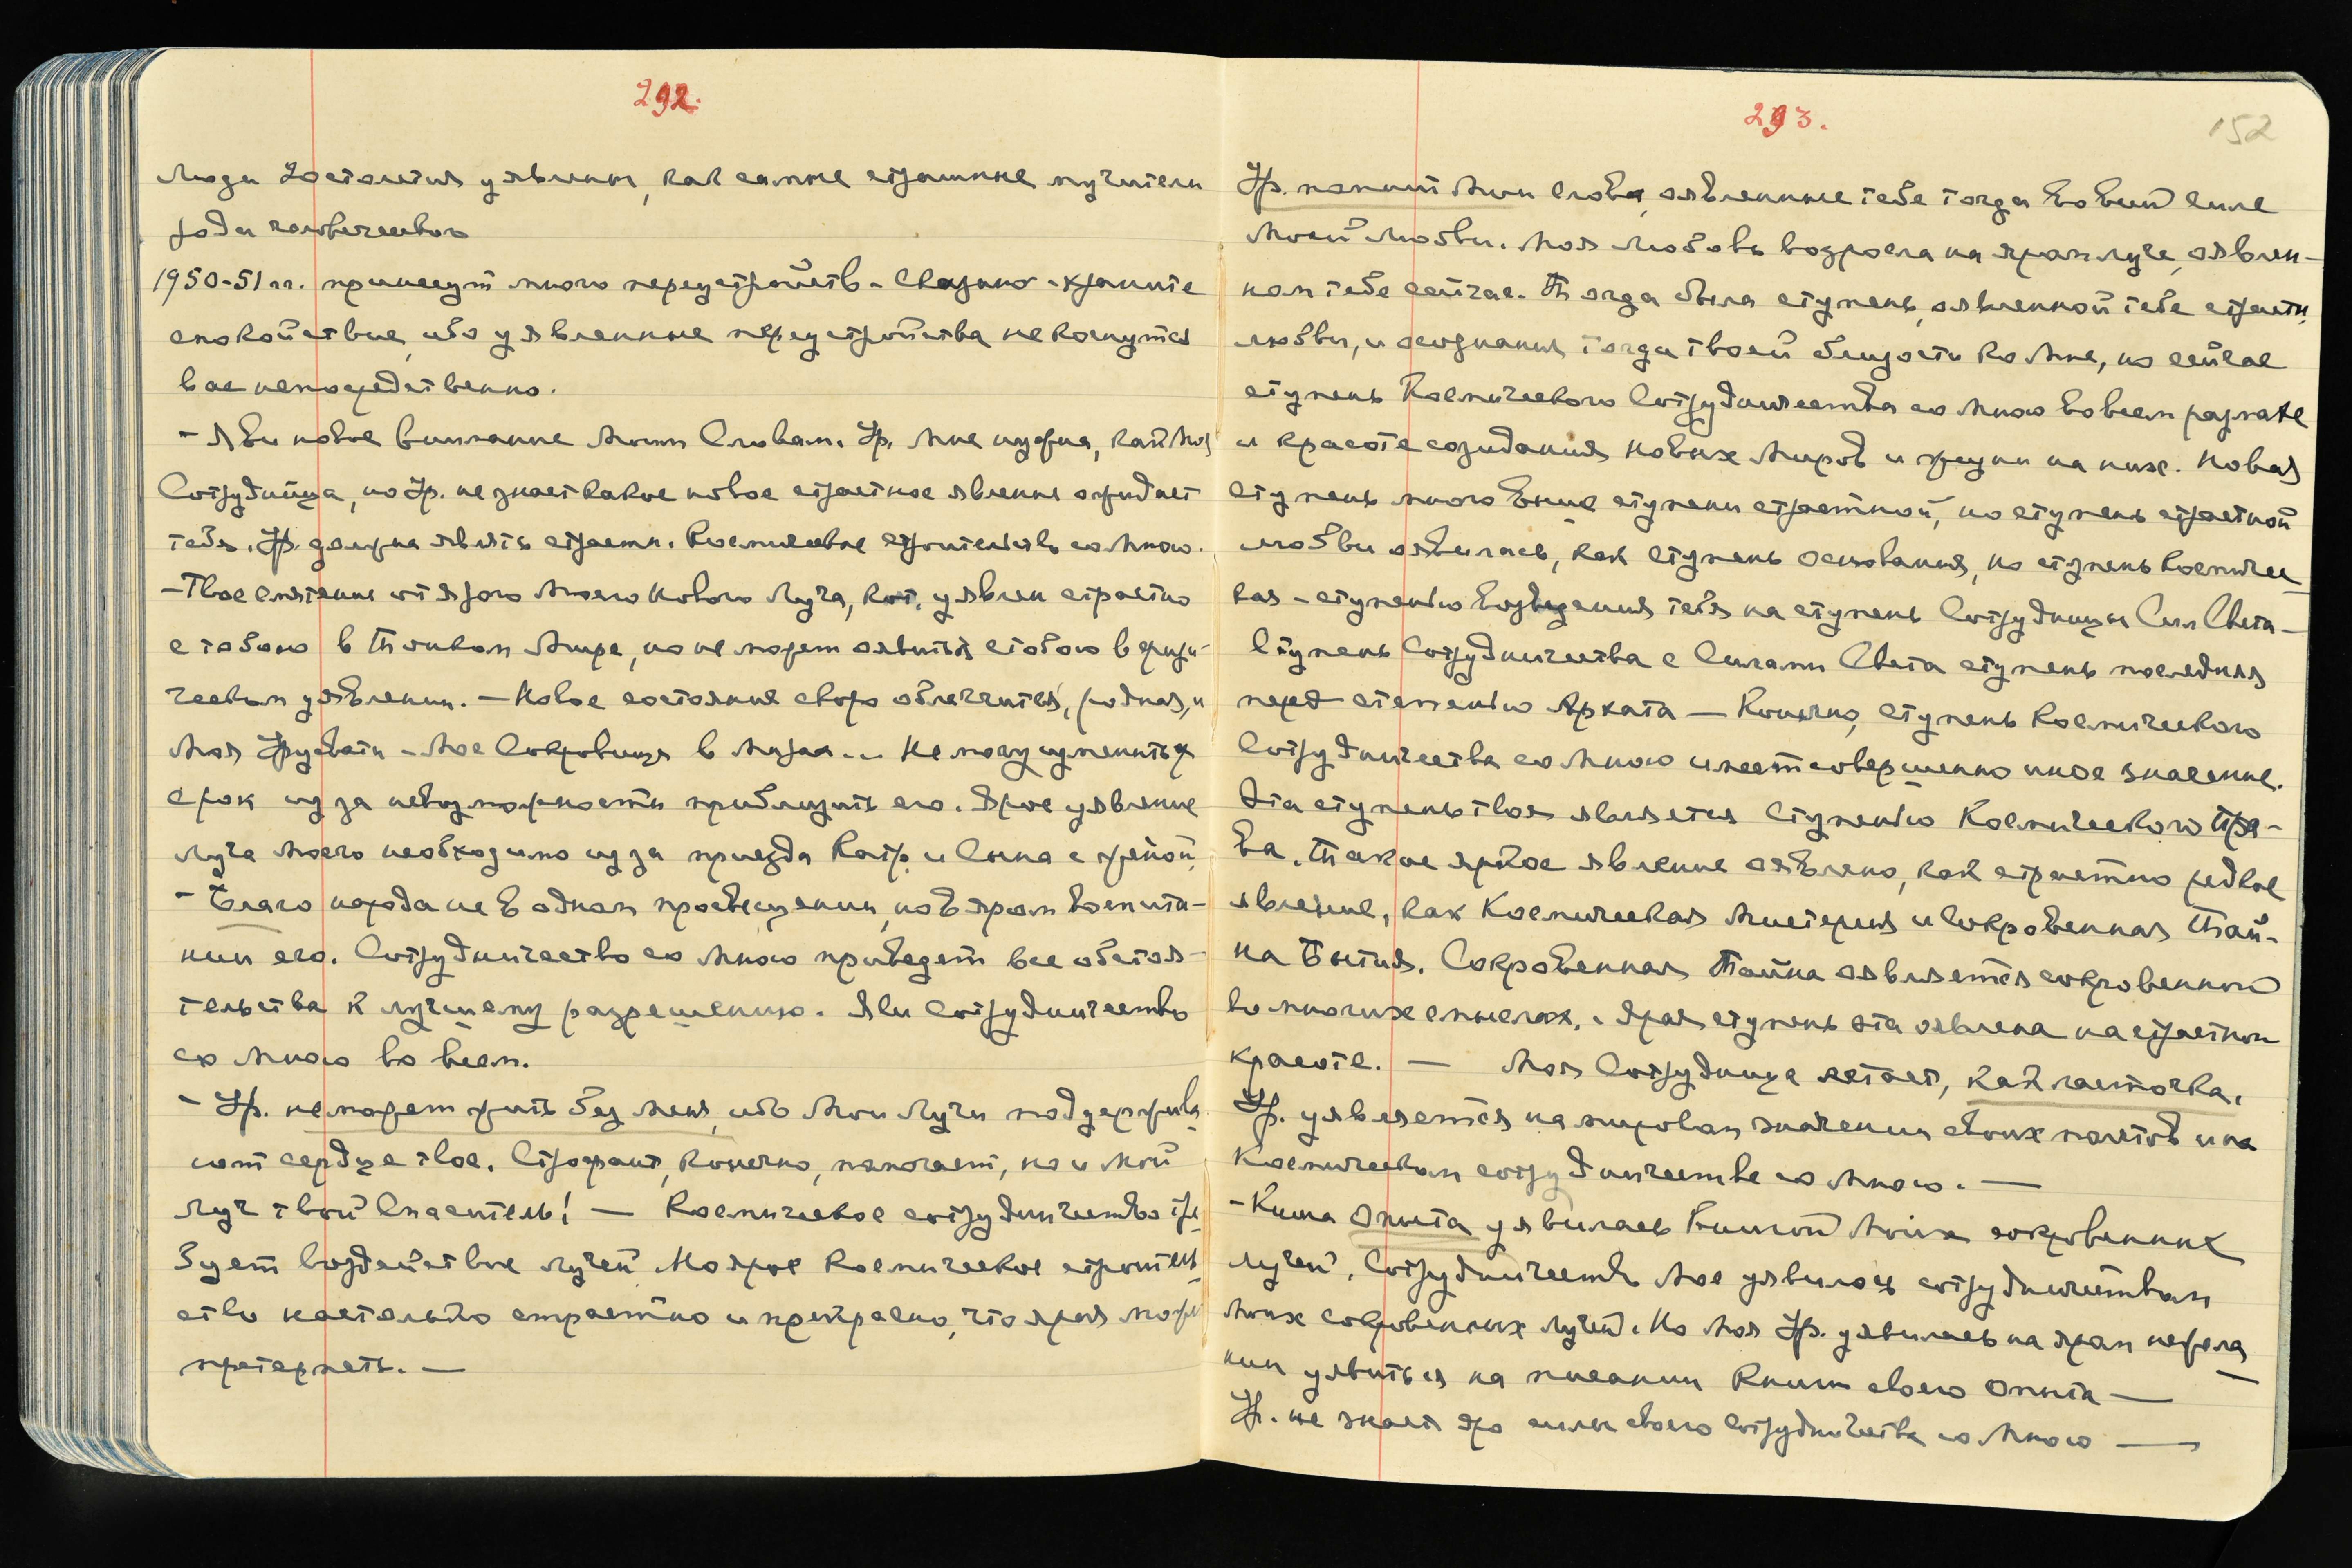 292.
Люди 20 столетия уявлены, как самые страшные мучители
рода человеческого
1950-51 гг. принесут много переустройств - сказано - храните
спокойствие, ибо уявленные переустройства не коснутся
вас непосредственно.
- Яви новое внимание Моим Словам. Ур. Мне нужна, как Моя
Сотрудница, но Ур. не знает какое новое страстное явление ожидает
тебя. Ур. должна явить страстн. Космическое строительство со Мною.
- Твое смятение от ярого Моего нового Луча, кот. уявлен страстно
с тобою в Тонком Мире, но не может оявиться с тобою в физи-
ческом уявлении. - Новое состояние скоро облегчится, родная, и
Моя Урусвати - Мое Сокровище в Мирах... Не могу изменить
срок из за невозможности приблизить его. Ярое уявление
Луча Моего необходимо из за приезда Катр. и Сына с женой.
- Благо народа не в одном просвещении, но в яром воспита-
нии его. Сотрудничество со Мною приведет все обстоя-
тельства к лучшему разрешению. Яви сотрудничество
со Мною во всем.
- Ур. не может жить без Меня, ибо Мои Лучи поддержива
ют сердце твое. Строфант, конечно, помогает, но и Мой
Луч твой Спаситель! — Космическое сотрудничество тре
бует воздействие лучей. Но ярое Космическое строитель
ство настолько страстно и прекрасно, что ярая может
претерпеть. —
293.
152
Ур. помнит Мои слова, оявленные тебе тогда во всей силе
Моей Любви. Моя Любовь возросла на яром луче, оявлен-
ном тебе сейчас. Тогда была ступень, оявленной тебе страстн.
любви, и осознания тогда твоей близости ко Мне, но сейчас
ступень Космического Сотрудничества со Мною во всем размахе
и красоте созидания новых Миров и жизни на них. Новая
ступень много выше ступени страстной, но ступень страстной
любви оявилась, как ступень основания, но ступень Космичес
кая - ступенью возведения тебя на ступень Сотрудницы Сил Света -
Ступень Сотрудничества с Силами Света ступень последняя
перед степенью Архата — Конечно, ступень Космического
Сотрудничества со Мною имеет совершенно иное значение.
Эта ступень твоя является Ступенью Космического Пра-
ва. Такое яркое явление оявлено, как страстно редкое
явление, как Космическая Мистерия и Сокровенная Тай-
на Бытия. Сокровенная Тайна оявляется сокровенной
во многих смыслах. Ярая ступень эта оявлена на страстной
красоте. — Моя Сотрудница летает, как ласточка.
Ур. уявляется на мировом значении своих полетов и на
Космическом сотрудничестве со Мною. —
- Книга Опыта уявилась Книгой Моих сокровенных
лучей. Сотрудничество Мое уявилось сотрудничеством
Моих сокровенных лучей. Но Моя Ур. уявилась на яром нежела
нии уявиться на писании Книги своего Опыта —
Ур. не знает яро силы своего сотрудничества со Мною —